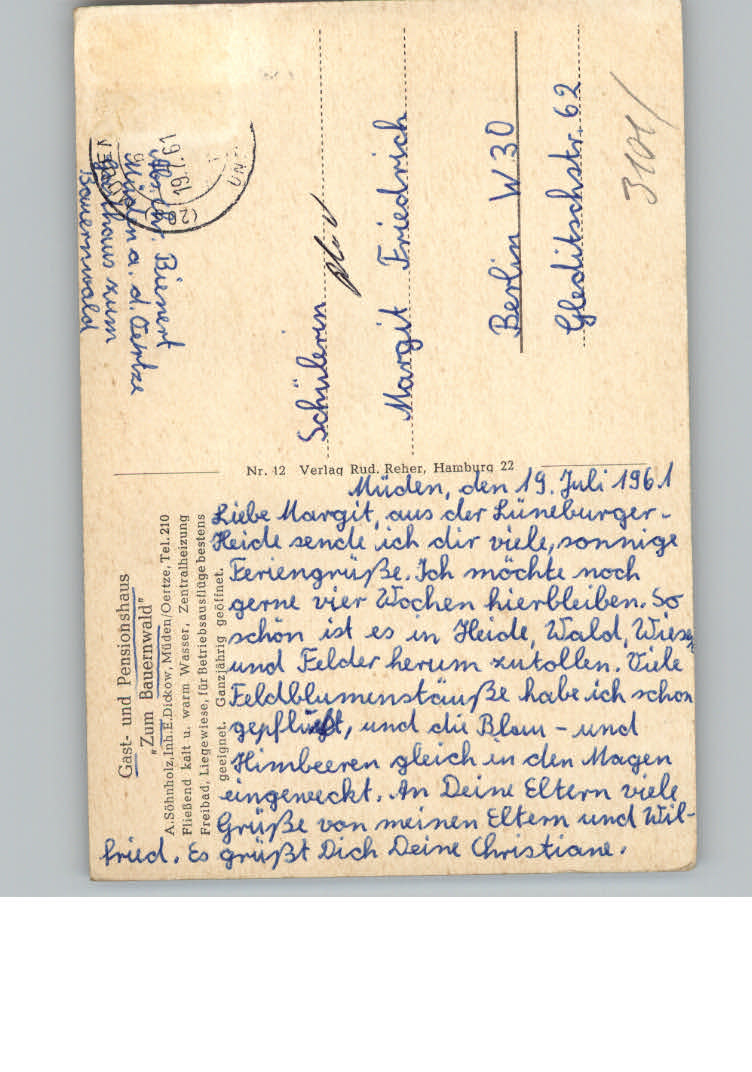 Gast- und Pensionshaus
"Zum Bauernwald"
A. Söhnholz, Inh. E. Dickow, Müden/Oertze, Tel. 210
Fließend kalt u. warm Wasser, Zentralheizung
Freibad, Liegewiese, für Betriebsausflüge bestens
geeignet. Ganzjährig geöffnet.
Müden, den 19. Juli 1961
Liebe Margit, aus der Lüneburger-
Heide sende ich dir viele, sonnige
Feriengrüße. Ich möchte noch
gerne vier Wochen hierbleiben. So
schön ist es in Heide, Wald, Wiese,
und Felder herum zutollen. Viele
Feldblumenstäuße habe ich schon
gepflückt, und die Blau- und
Himbeeren gleich in den Magen
eingeweckt. An Deine Eltern viele
Grüße von meinen Eltern und Wil-
fried. Es grüßt Dich Deine Christiane.
Nr. 12 Verlag Rud. Reher, Hamburg 22
Bienert
Müden a. d. Oertze
Gasthaus zum
Bauernwald
19.7.61
(20
Schülerin
Margit Friedrich
Berlin W 30
Gleditschstr. 62